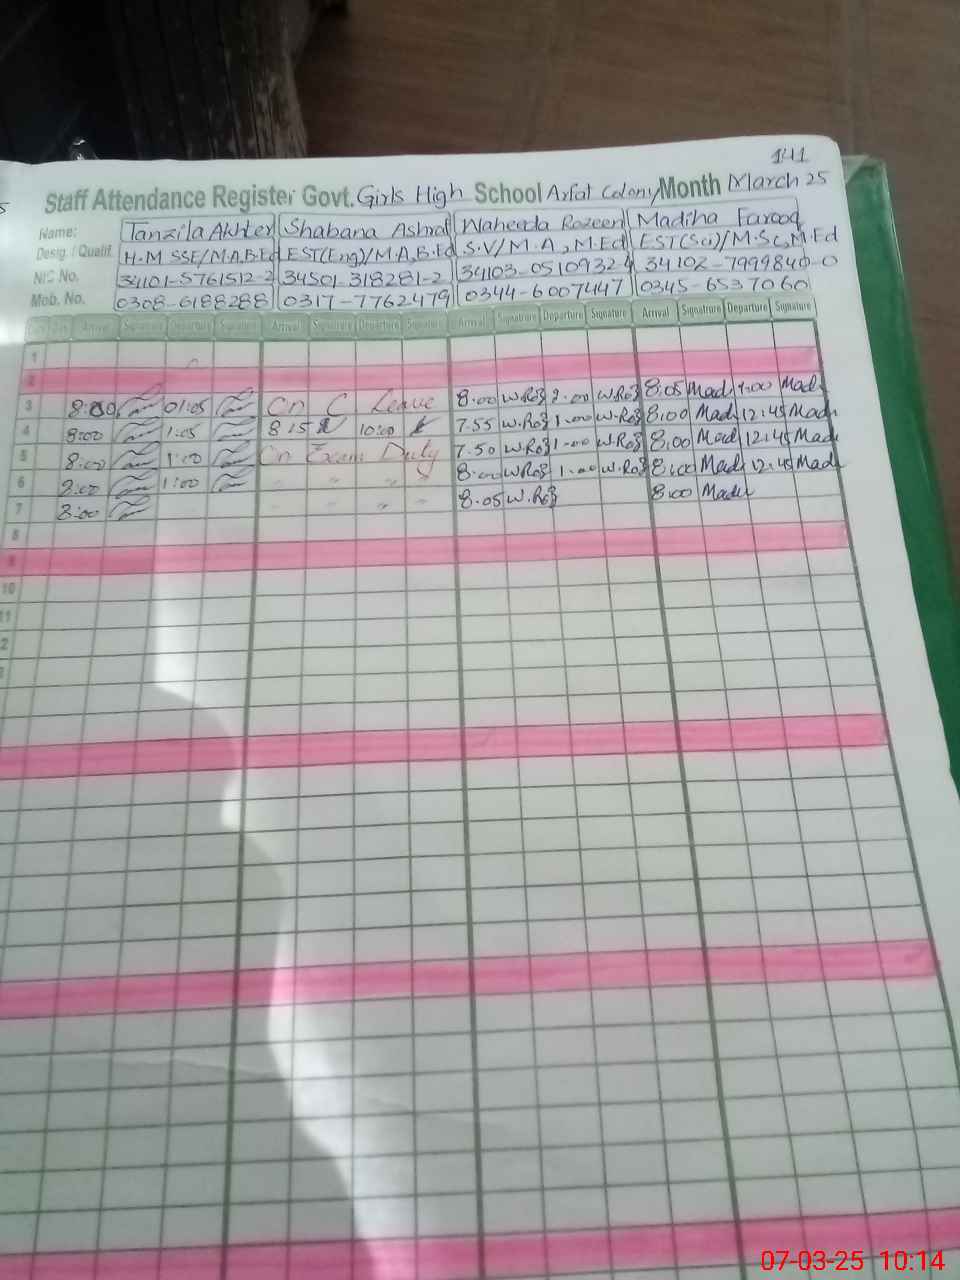 141
Staff Attendance Register Govt. Girls High School Arfat Colony Month March 25
Name: Tanzila Akhter Shabana Ashraf Waheeda Rozeen Madiha Farooq
Desig. / Qualif. H.M SSE/M.A,B.Ed EST(Eng)/M.A,B.Ed S.V/M.A, M.Ed EST(Sci)/M.Sc, M.Ed
NIC No. 34101-5761512-2 34501-318281-2 34103-0510932 34102-7999840-0
Mob. No. 0308-6188288 0317-7762479 0344-6007447 0345-6537060
Arrival Signature Departure Signature Arrival Signature Departure Signature Arrival Signature Departure Signature Arrival Signature Departure Signature
1
2
3 8:00 01:05 On C Leave 8.00 W.Roz 2.00 W.Roz 8:05 Madi 1:00 Madi
4 8:00 1:05 8 15 10:00 7.55 W.Roz 1.00 W.Roz 8:00 Madi 12:45 Madi
5 8:00 1:00 On Exam Duty 7.50 W.Roz 1.00 W.Roz 8:00 Madi 12:45 Madi
6 8:00 1:00 " " " " 8.00 W.Roz 1.00 W.Roz 8:00 Madi 12:45 Madi
7 8:00 " " " " 8.05 W.Roz 8:00 Madi
8
9
10
11
2
07-03-25 10:14